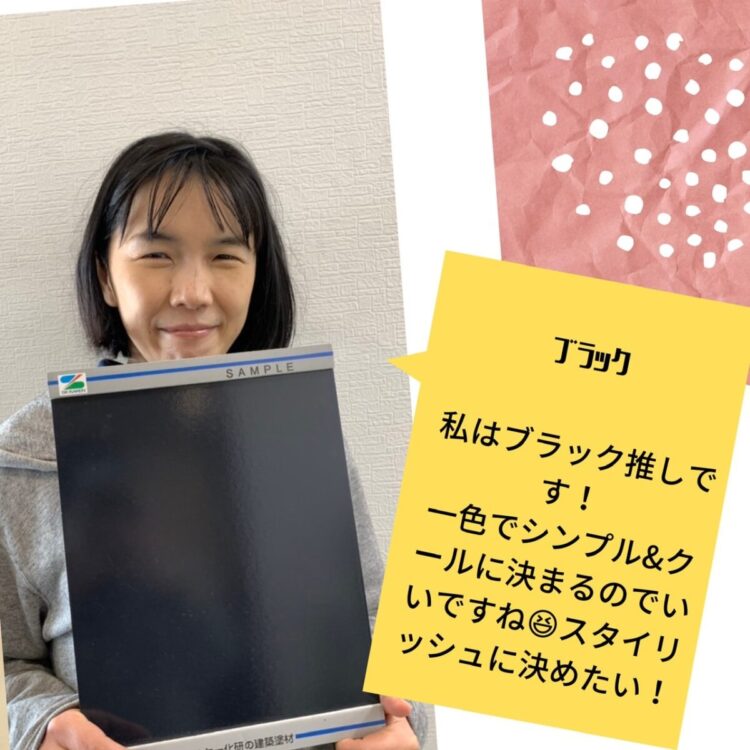 SAMPLE
ブラック
私はブラック推しで
す！
一色でシンプル&ク
ールに決まるのでい
いですね😆スタイリ
ッシュに決めたい！
化研の建築塗材